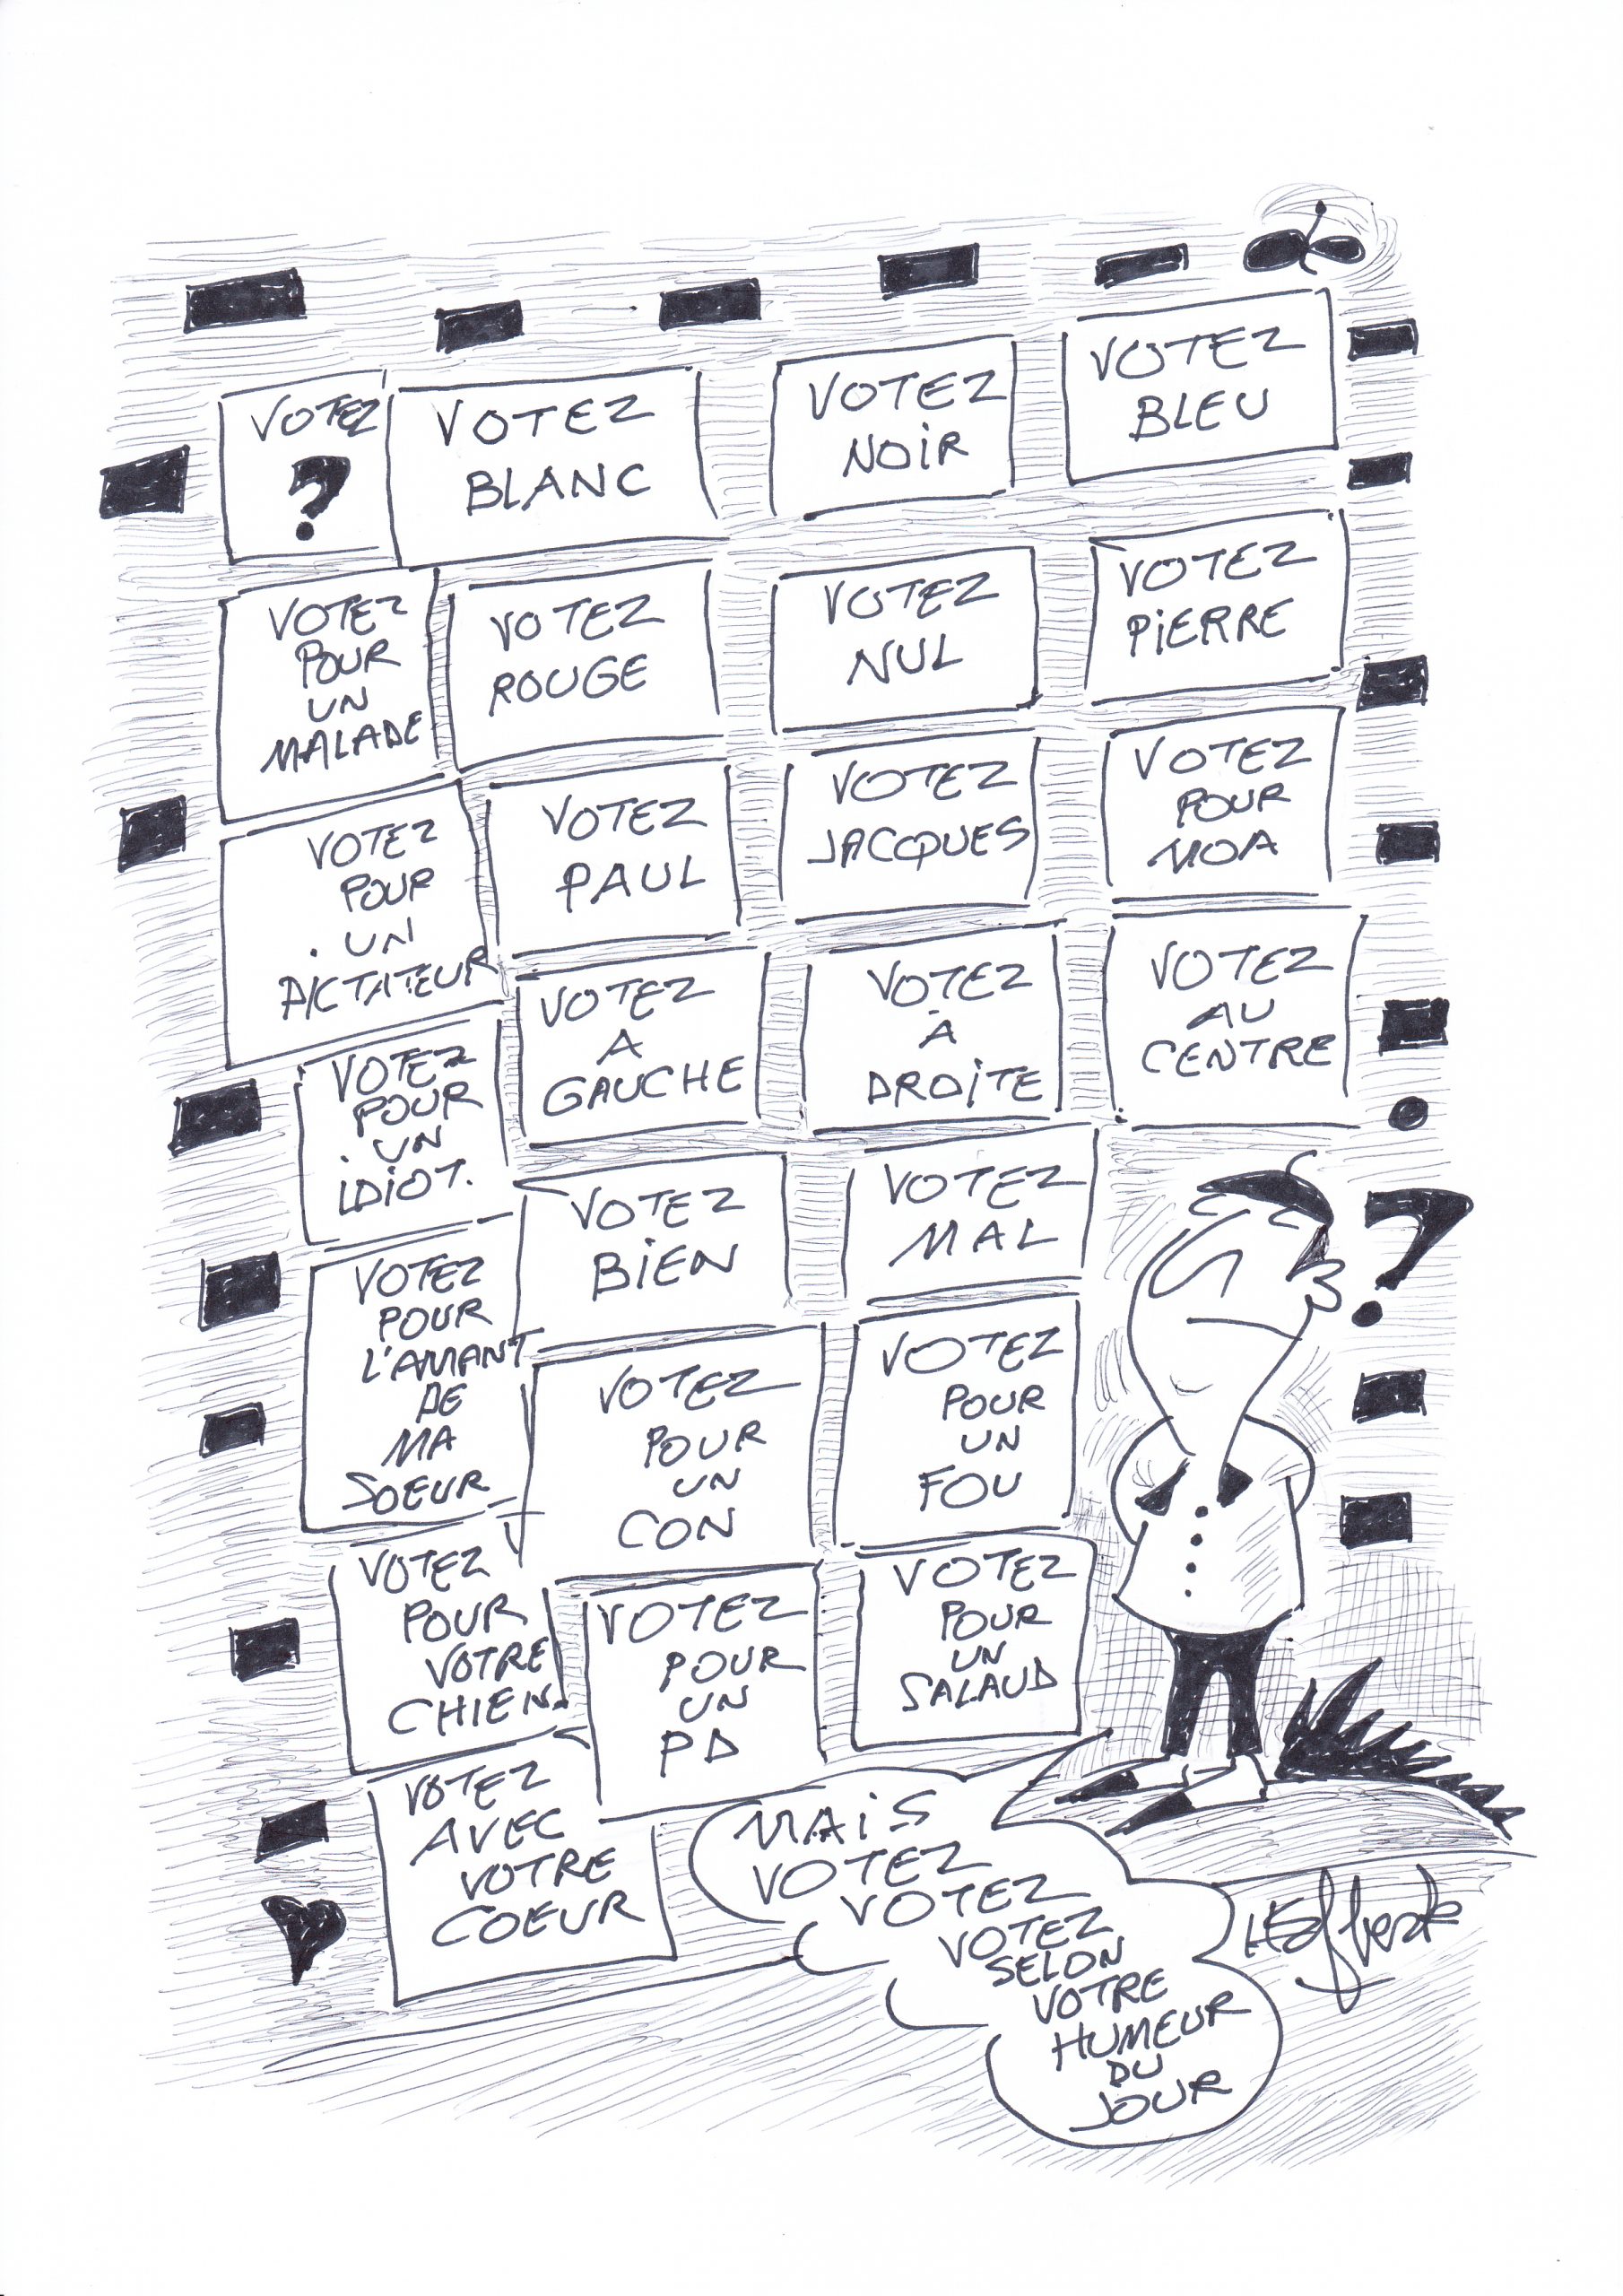 VOTEZ
?
VOTEZ
BLANC
VOTEZ
NOIR
VOTEZ
BLEU
VOTEZ
POUR
UN
MALADE
VOTEZ
ROUGE
VOTEZ
NUL
VOTEZ
PIERRE
VOTEZ
POUR
UN
DICTATEUR
VOTEZ
PAUL
VOTEZ
JACQUES
VOTEZ
POUR
MOA
VOTEZ
POUR
UN
IDIOT.
VOTEZ
A
GAUCHE
VOTEZ
À
DROITE
VOTEZ
AU
CENTRE
VOTEZ
POUR
L'AMANT
DE
MA
SOEUR
VOTEZ
BIEN
VOTEZ
MAL
?
VOTEZ
POUR
UN
CON
VOTEZ
POUR
UN
FOU
VOTEZ
POUR
VOTRE
CHIEN.
VOTEZ
POUR
UN
PD
VOTEZ
POUR
UN
SALAUD
VOTEZ
AVEC
VOTRE
COEUR
MAIS
VOTEZ
VOTEZ
VOTEZ
SELON
VOTRE
HUMEUR
DU
JOUR